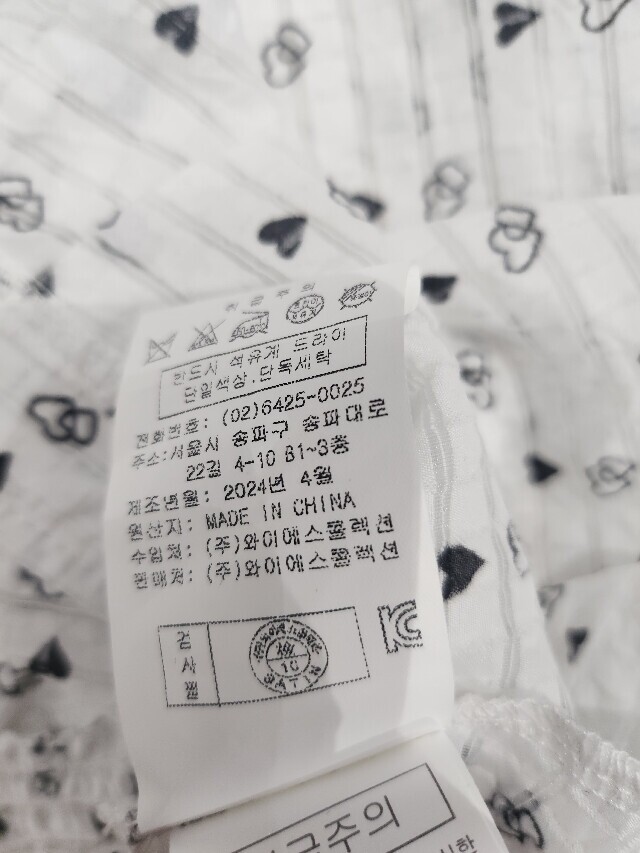 반드시 석유계 드라이
단일색상.단독세탁
전화번호: (02)6425-0025
주소:서울시 송파구 송파대로
22길 4-10 B1~3층
제조년월: 2024년 4월
원산지: MADE IN CHINA
수입처: (주)와이에스콜렉션
판매처: (주)와이에스콜렉션
검사필
10
SATIN
KC
취급주의